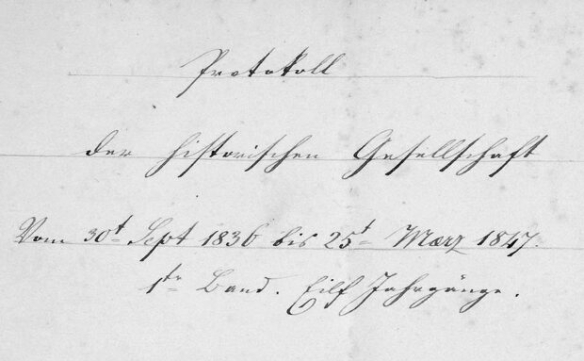 Protokoll
der historischen Gesellschaft
Vom 30t Sept 1836 bis 25t Maerz 1847.
1tr Band. Eilf Jahrgänge.